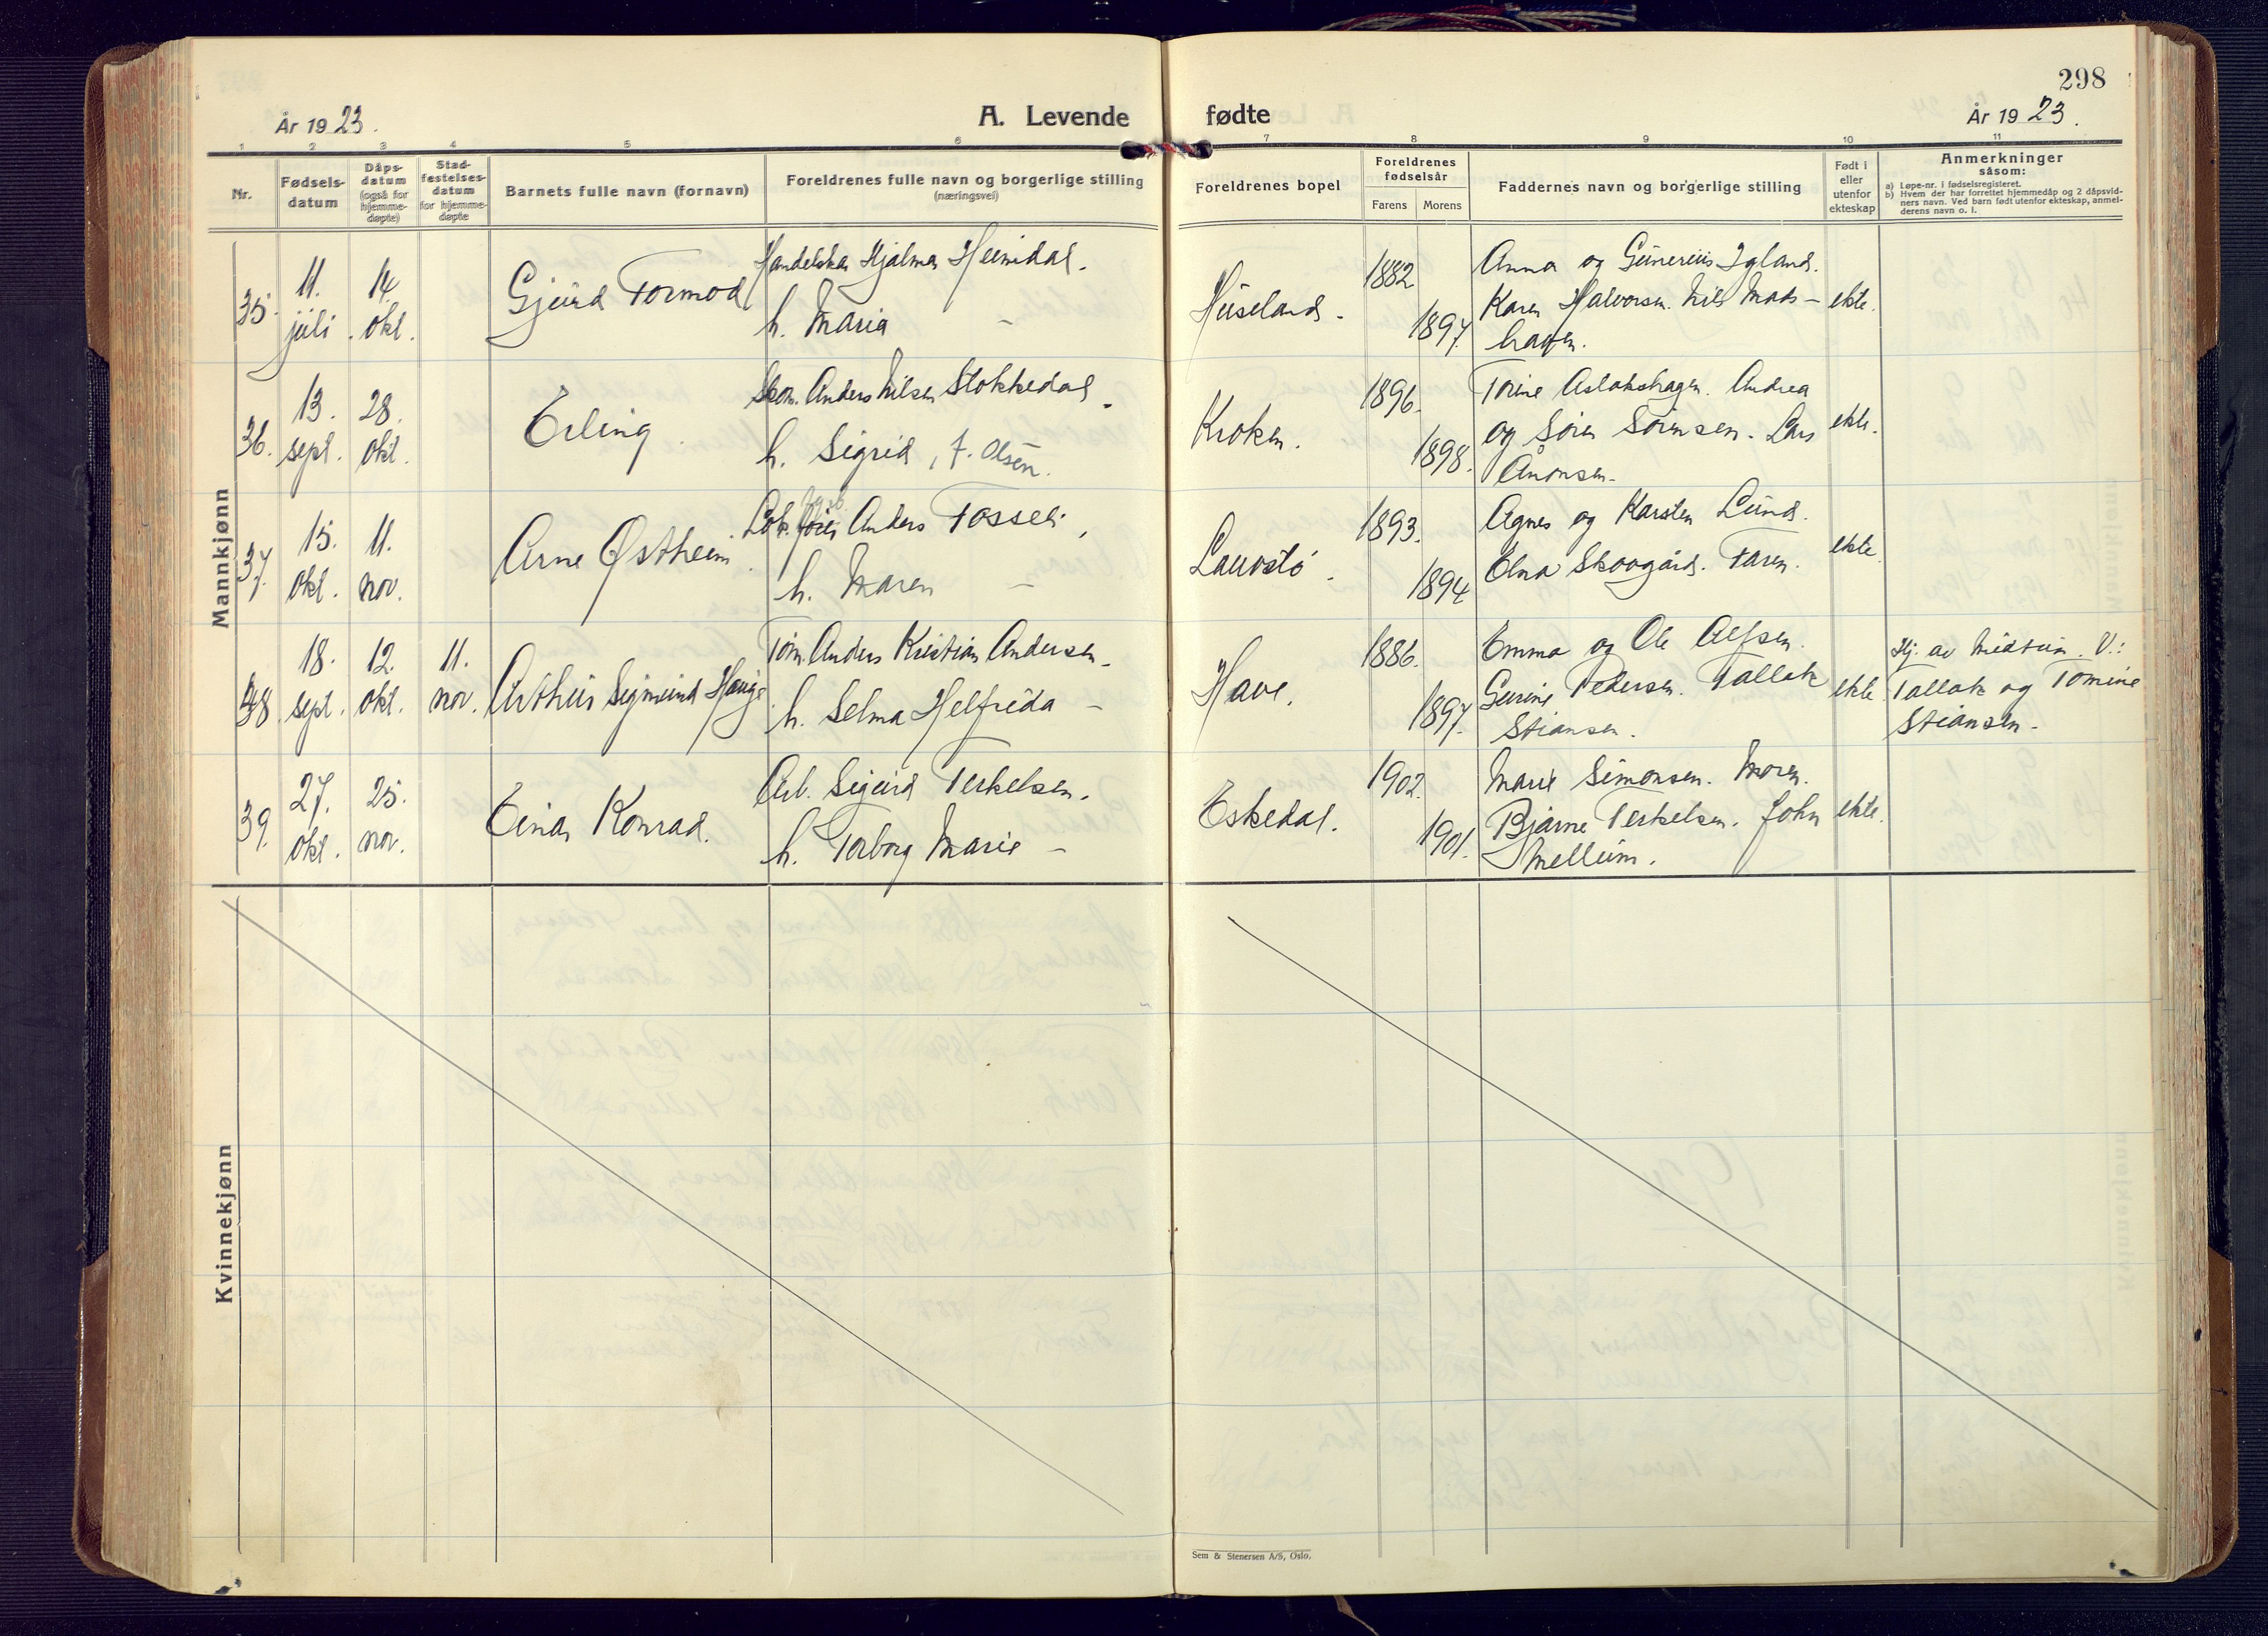 298
År 1923.
A. Levende fødte
År 1923.
1 2 3 4 5 6 7 8 9 10 11
Nr.
Fødsels-
datum
Dåps-
datum
(også for
hjemme-
døpte)
Stad-
festelses-
datum
for hjemme-
døpte
Barnets fulle navn (fornavn)
Foreldrenes fulle navn og borgerlige stilling
(næringsvei)
Foreldrenes bopel
Foreldrenes
fødselsår
Farens Morens
Faddernes navn og borgerlige stilling
Født i
eller
utenfor
ekteskap
Anmerkninger
såsom:
a) Løpe-nr. i fødselsregisteret.
b) Hvem der har forrettet hjemmedåp og 2 dåpsvid-
ners navn. Ved barn født utenfor ekteskap, anmel-
derens navn o. l.
Mannkjønn
35.
11.
juli
14.
okt.
Gjeurd Tormod
Handelskar Hjalmar Heimdal.
h. Maria –
Huseland.
1882
1897.
Anna og Gunerius Igland.
Karen Halvorsen. Nils Mads-
hagen.
ekte.
36.
13.
sept.
28.
okt.
Erling
Skom. Anders Nilsen Stokkedal.
h. Sigrid, f. Olsen.
Kroken.
1896.
1898.
Torine Aslakshagen. Andrea
og Søren Sørensen. Lars
Ånonsen.
ekte.
37.
15.
okt.
11.
nov.
Arne Østheim.
Lok. Anders Tosseli,
h. Maren –
Lauvstø.
1893.
1894
Agnes og Karsten Lund.
Elna Skovgård. Faren.
ekte.
38.
18.
sept.
12.
okt.
11.
nov.
Arthur Sigmund Hauge.
Tøm. Anders Kristian Andersen.
h. Selma Helfrida –
Have.
1886.
1897.
Emma og Ole Alfsen.
Gurine Pedersen. Tallak
Stiansen.
ekte.
Hj. av Midtun. V.:
Tallak og Tomine
Stiansen.
39.
27.
okt.
25.
nov.
Einar Konrad.
Arb. Sigurd Terkelsen.
h. Torborg Marie –
Eskedal.
1902.
1901.
Marie Simonsen. Moren.
Bjarne Terkelsen. John
Mellum.
ekte.
Kvinnekjønn
Sem & Stenersen A/S, Oslo.